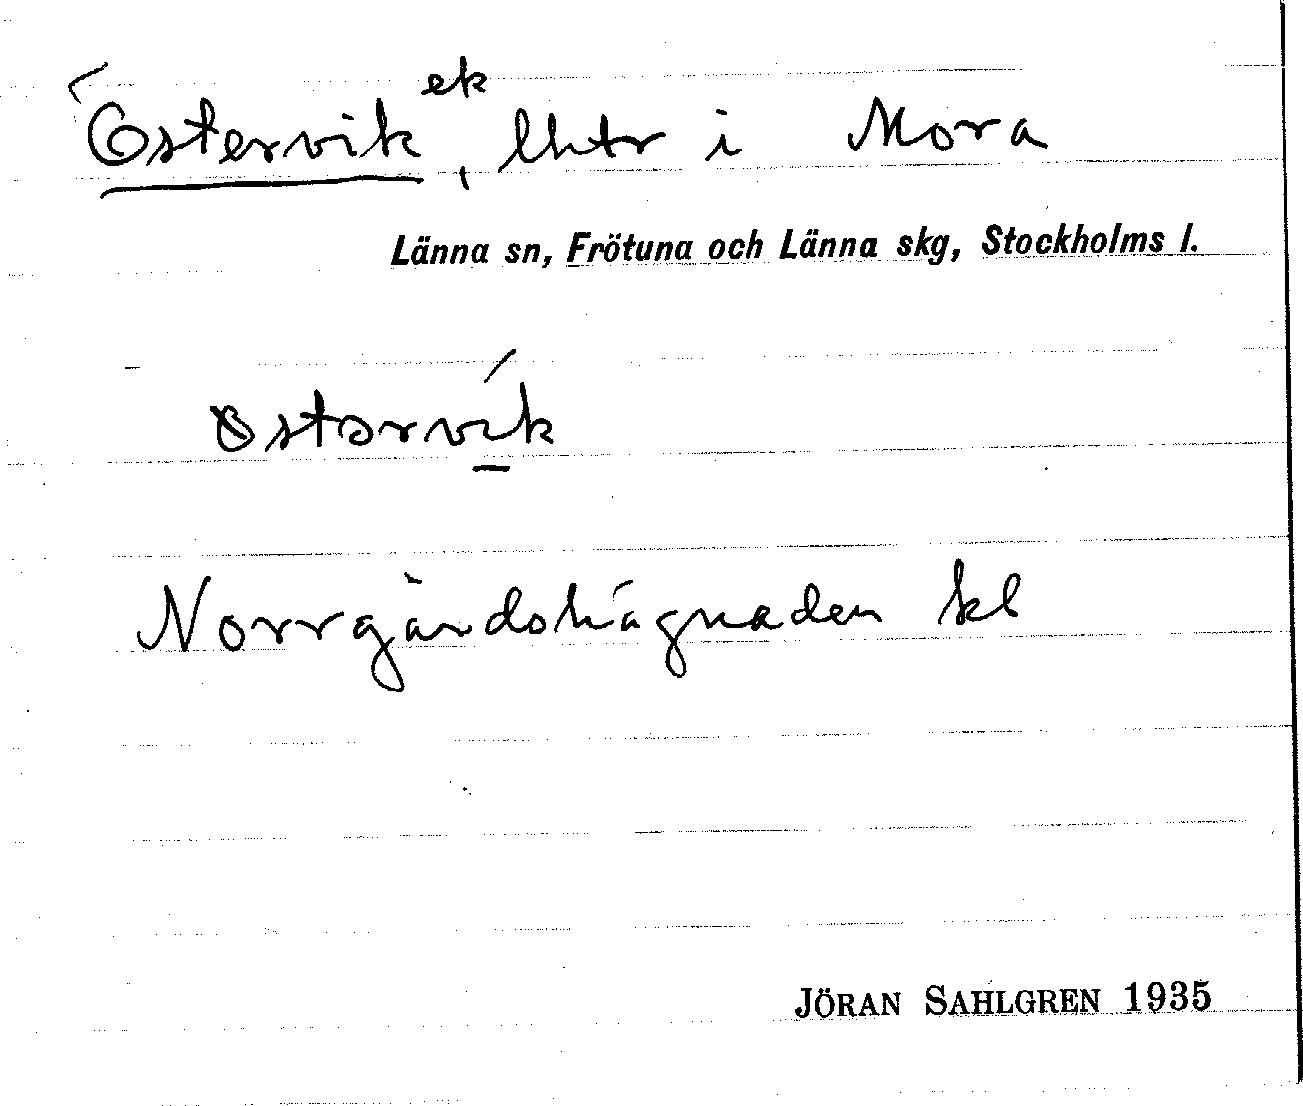 Östervik ek, lhtr i Mora
Länna sn, Frötuna och Länna skg, Stockholms l.
østərvík
Norrgårdshägnaden kl
JÖRAN SAHLGREN 1935